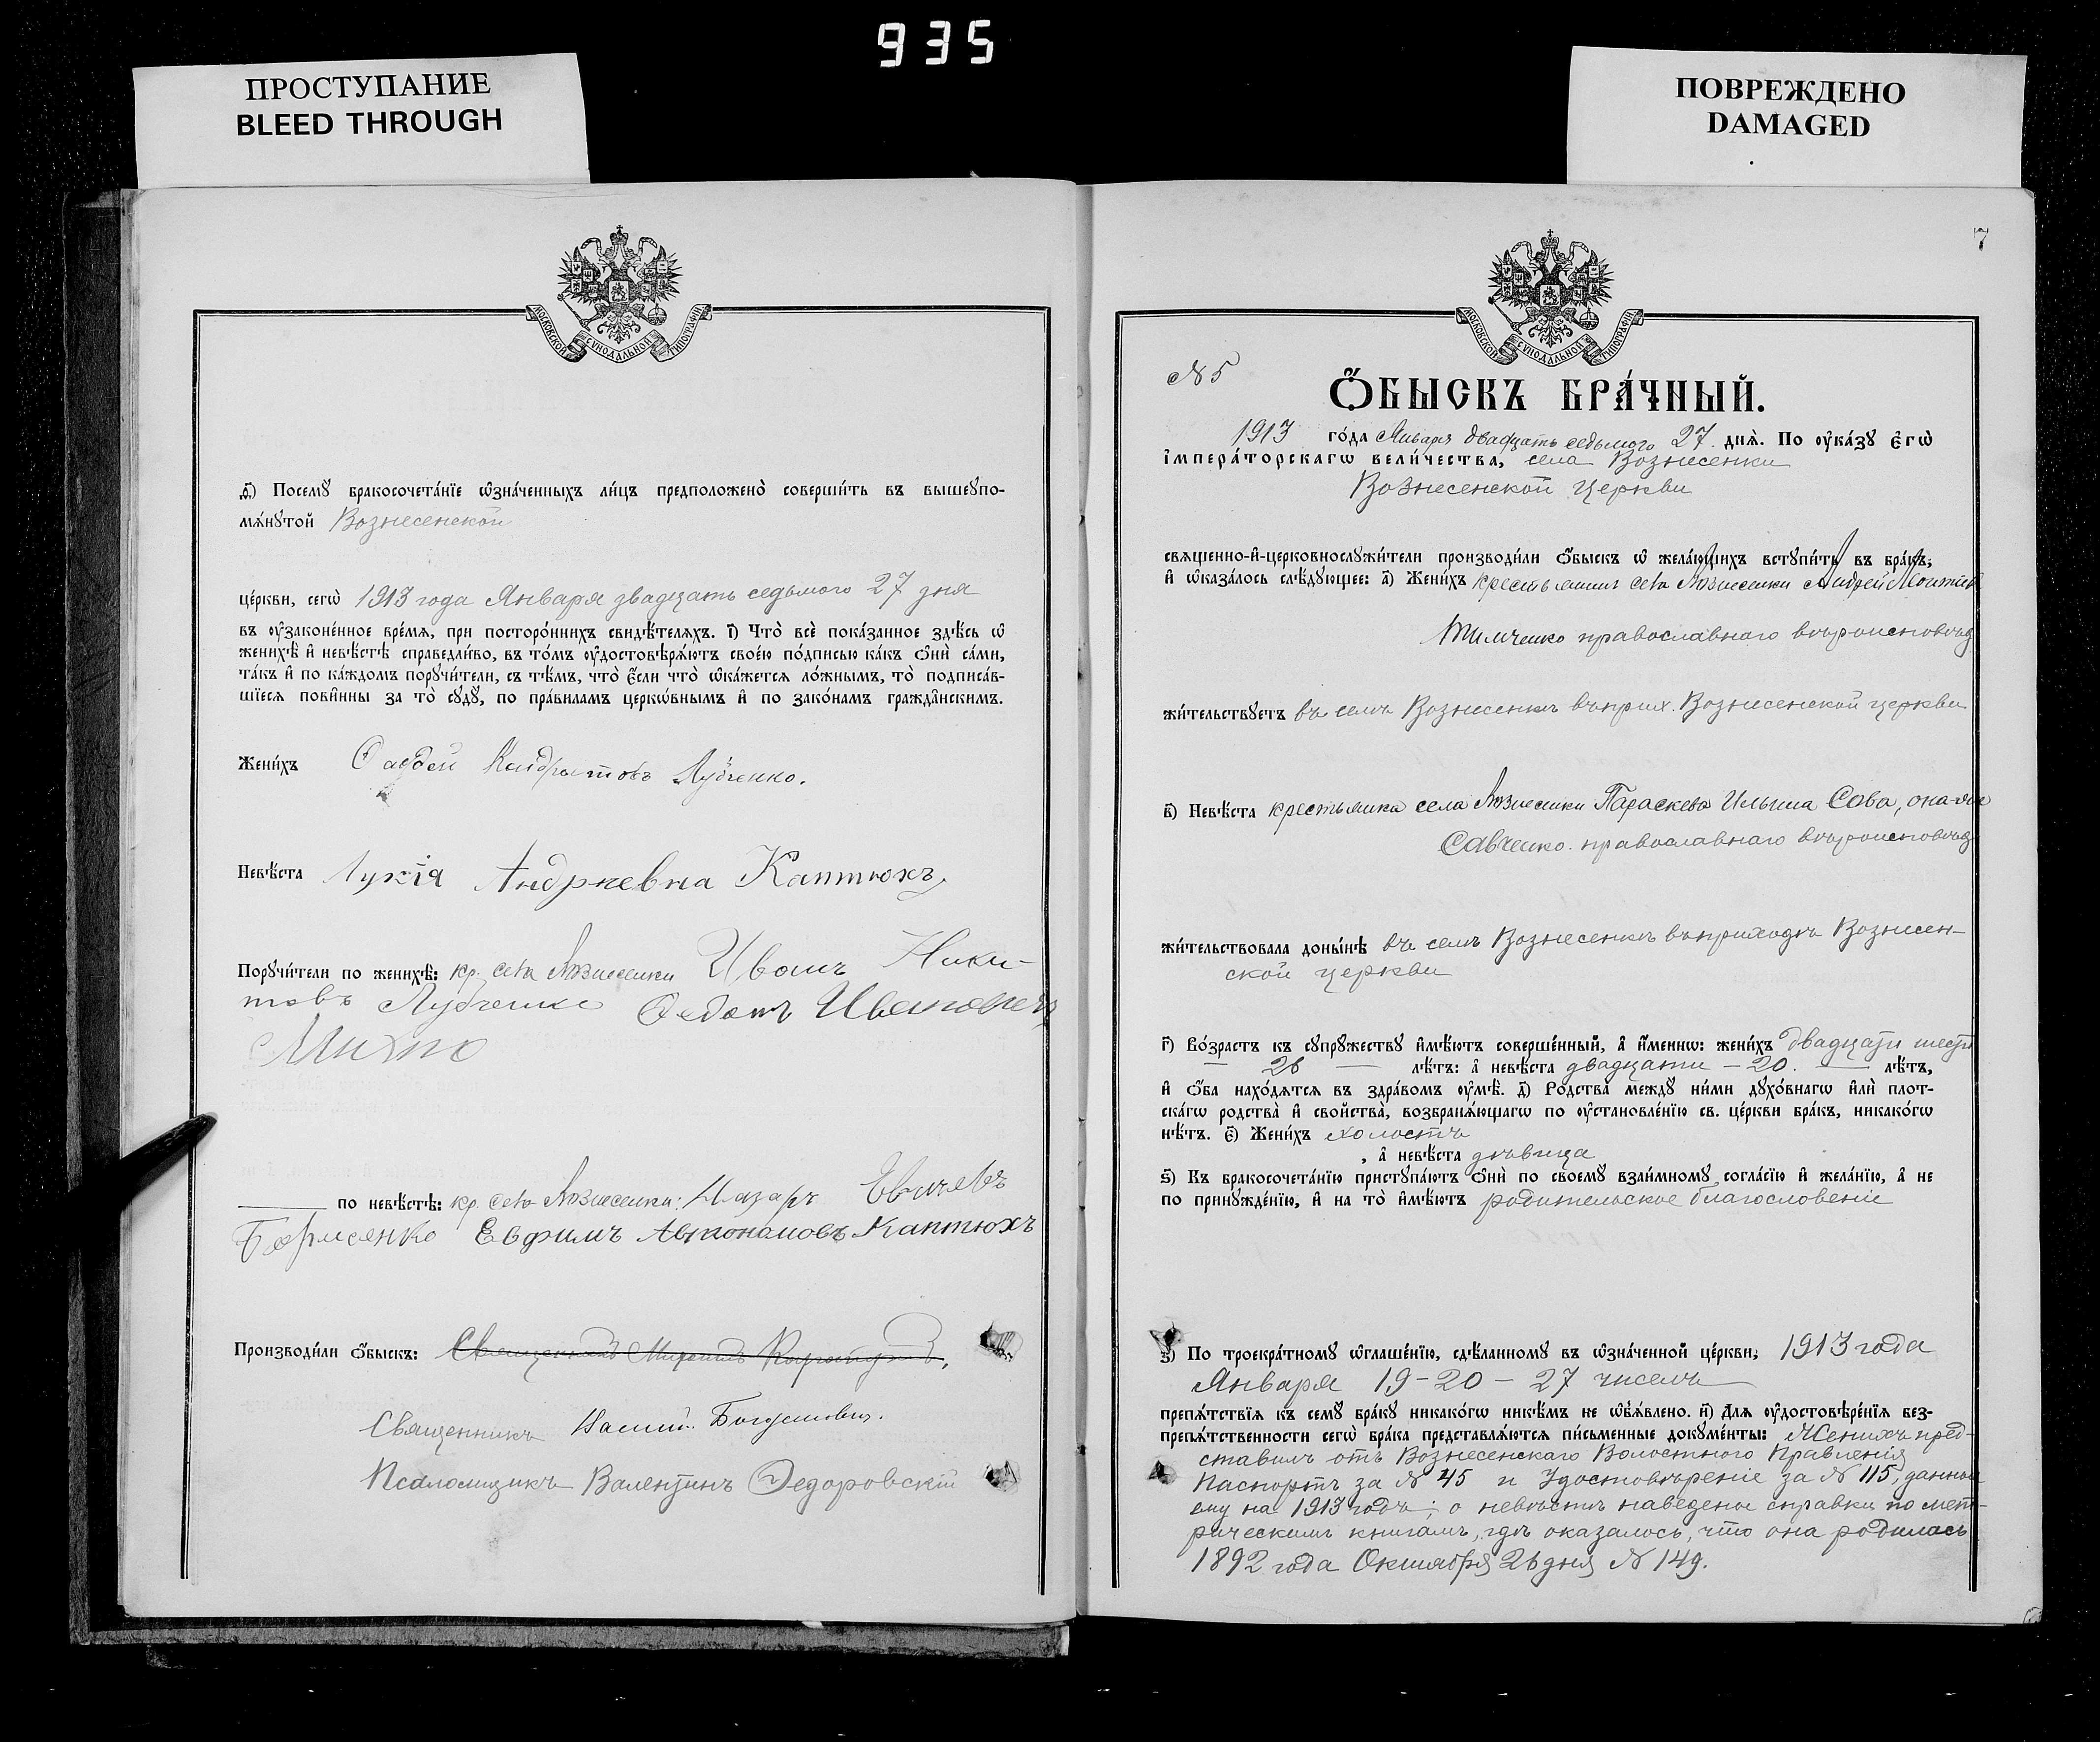 935
ПРОСТУПАНИЕ
BLEED THROUGH
ПОВРЕЖДЕНО
DAMAGED
МОСКОВСКОЙ СѴНОДАЛЬНОЙ ТИПОГРАФІИ
д҃) Посемꙋ̀ бракосочета́нїе ѡ҆зна́ченныхъ ли́цъ предположено̀ соверши́ть въ вышеꙋпо-
мѧ́нꙋтой Вознесенской
це́ркви, сегѡ̀ 1913 года Января двадцать седьмого 27 дня
въ ѹ҆законе́нное вре́мѧ, при посторо́ннихъ свидѣ́телѧхъ. і҃) Что̀ всѐ пока́занное здѣ́сь ѡ҆
женихѣ̀ и҆ невѣ́стѣ справедли́во, въ то́мъ ѹ҆достовѣрѧ́ютъ свое́ю по́дписью ка́къ ѻ҆нѝ са́ми,
та́къ и҆ по ка́ждомъ порꙋчи́тели, съ тѣ́мъ, что̀ є҆́сли что̀ ѡ҆ка́жетсѧ ло́жнымъ, то̀ подписа́в-
шїесѧ пови́нны за то̀ сꙋдꙋ̀, по пра́виламъ церко́внымъ и҆ по зако́намъ гражда́нскимъ.
Жени́хъ Фаддей Кондратовъ Лубченко.
Невѣ́ста Лукія Андреевна Каптюхъ,
Порꙋчи́тели по женихѣ̀: кр. села Вознесенки Иванъ Ники-
товъ Лубченко Федотъ Ивановичъ
Михно
по невѣ́стѣ: кр. села Вознесенки: Назаръ
Евфимъ Автономовъ Каптюхъ
Производи́ли ѻ҆́быскъ: Священникъ
Священникъ
Псаломщикъ Валентинъ Федоровскій
7
МОСКОВСКОЙ СѴНОДАЛЬНОЙ ТИПОГРАФІИ
№ 5
Ѻ҆́БЫСКЪ БРА́ЧНЫЙ.
1913 го́да Января двадцать седьмого 27 днѧ̀. По ѹ҆ка́зꙋ є҆гѡ̀
і҆мпера́торскагѡ вели́чества, села Вознесенки
Вознесенской церкви
свѧщенно-и҆-церковнослꙋжи́тели производи́ли ѻ҆́быскъ ѡ҆ жела́ющихъ встꙋпи́ть въ бра́къ,
и҆ ѡ҆каза́лось слѣ́дꙋющее: а҃) Жени́хъ крестьянинъ села Вознесенки Андрей
Тимченко православнаго вѣроисповѣд
жи́тельствꙋетъ въ селѣ Вознесенкѣ въ прих. Вознесенской церкви
в҃) Невѣ́ста крестьянка села Вознесенки Параскева Ильина Сова, она-же
Савченко. православнаго вѣроисповѣд
жи́тельствовала доны́нѣ въ селѣ Вознесенкѣ въ приходѣ Вознесен-
ской церкви
г҃) Во́зрастъ къ сꙋпрꙋ́жествꙋ и҆мѣ́ютъ соверше́нный, а҆ и҆́меннѡ: жени́хъ двадцати шести
26 лѣ́тъ: а҆ невѣ́ста двадцати — 20. лѣ́тъ,
и҆ ѻ҆́ба нахо́дѧтсѧ въ здра́вомъ ѹ҆мѣ̀. д҃) Родства̀ междꙋ̀ ни́ми дꙋхо́внагѡ и҆лѝ плот-
ска́гѡ родства̀ и҆ сво́йства, возбранѧ́ющагѡ по ѹ҆становле́нїю св. це́ркви бра́къ, никако́гѡ
нѣ́тъ. є҃) Жени́хъ холостъ
, а҆ невѣ́ста дѣвица
ѕ҃) Къ бракосочета́нїю пристꙋпа́ютъ ѻ҆нѝ по своемꙋ̀ взаи́мномꙋ согла́сїю и҆ жела́нїю, а҆ не
по принꙋжде́нїю, и҆ на то̀ и҆мѣ́ютъ родительское благословеніе
з҃) По троекра́тномꙋ ѡ҆глаше́нїю, сдѣ́ланномꙋ въ ѡ҆зна́ченной це́ркви, 1913 года
Января 19 - 20 - 27 чиселъ
препѧ́тствїѧ къ семꙋ̀ бра́кꙋ никако́гѡ никѣ́мъ не ѡ҆б̾ѧ́влено. и҃) Длѧ ѹ҆достовѣре́нїѧ без-
препѧ́тственности сегѡ̀ бра́ка представлѧ́ютсѧ пи́сьменные докꙋме́нты: Женихъ пред-
ставилъ отъ Вознесенскаго Волостного Правленія
Паспортъ за № 45 и Удостовѣреніе за № 115, данное
ему на 1913 годъ; о невѣстѣ наведены справки по мет-
рическимъ книгамъ, гдѣ оказалось, что она родилась
1892 года Октября 26 дня № 149.